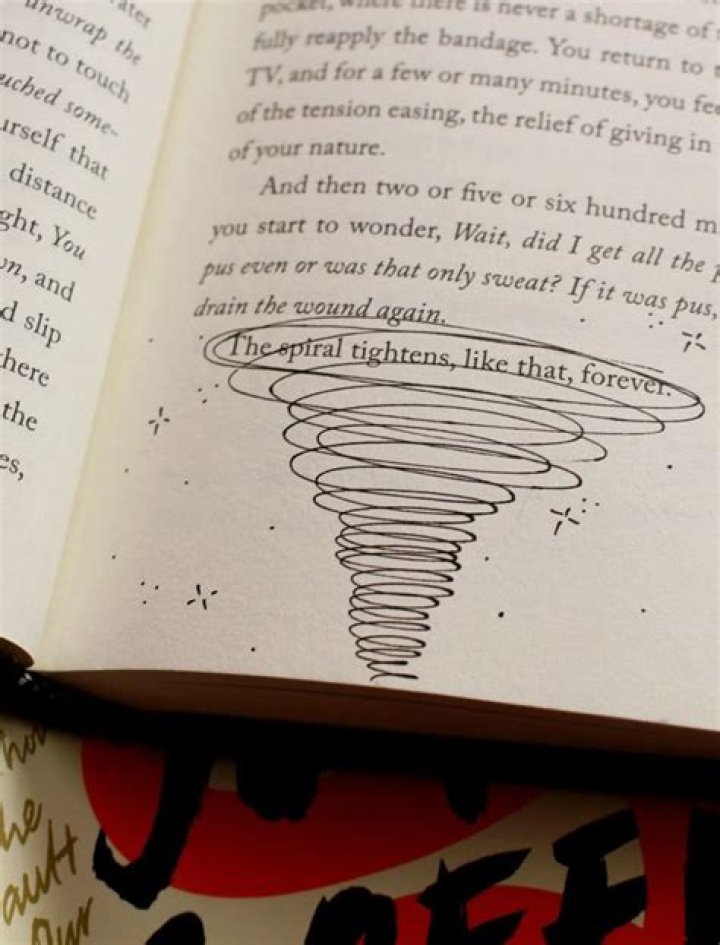 unwrap the
not to touch
uched some-
urself that
distance
ght, You
wn, and
d slip
here
the
es,
pocket, where there is never a shortage of
fully reapply the bandage. You return to
TV, and for a few or many minutes, you fee
of the tension easing, the relief of giving in
of your nature.
And then two or five or six hundred m
you start to wonder, Wait, did I get all the p
pus even or was that only sweat? If it was pus,
drain the wound again.
The spiral tightens, like that, forever.